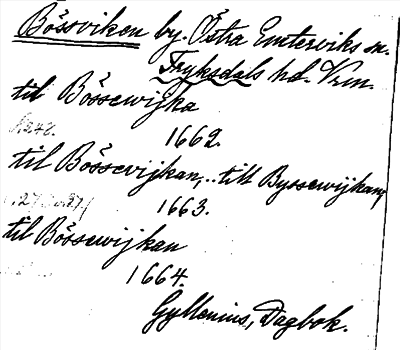 Bössviken by. Östra Emterviks sn.
Fryksdals hd. Vrm.
til Bössewijka
1662.
til Bössevijkan, .. till Byssewijkan,
1663.
til Bössewijkan
1664.
Gyllenius, Dagbok.